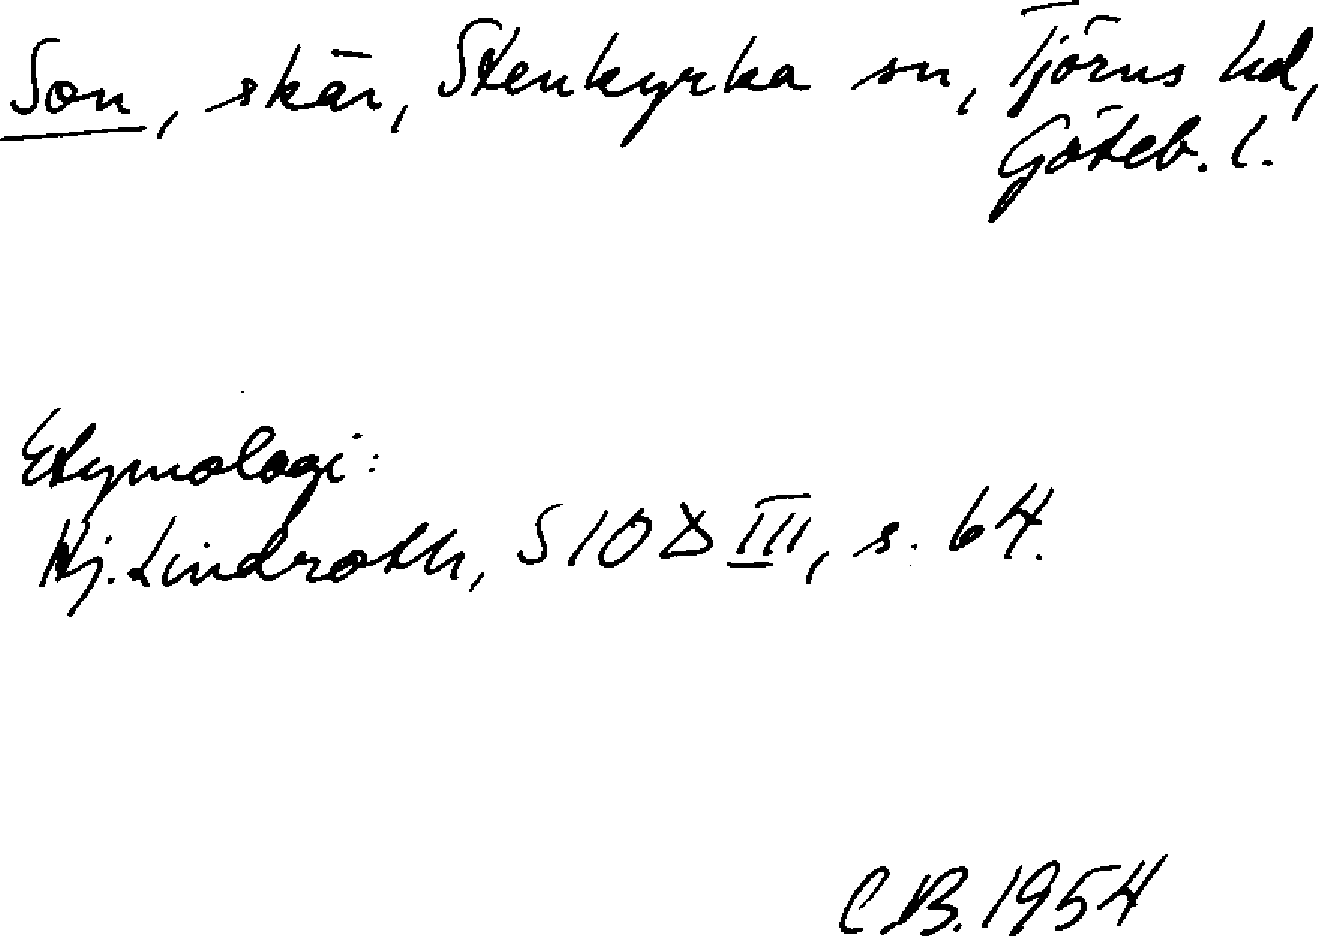 Son, skär, Stenkyrka sn, Tjörns hd,
Göteb. l.
Etymologi:
Hj. Lindroth, SIOD III, s. 64.
C.B. 1954